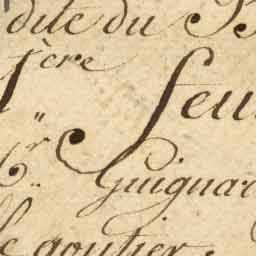 dite du
1ère feu
Guignar
le goutier